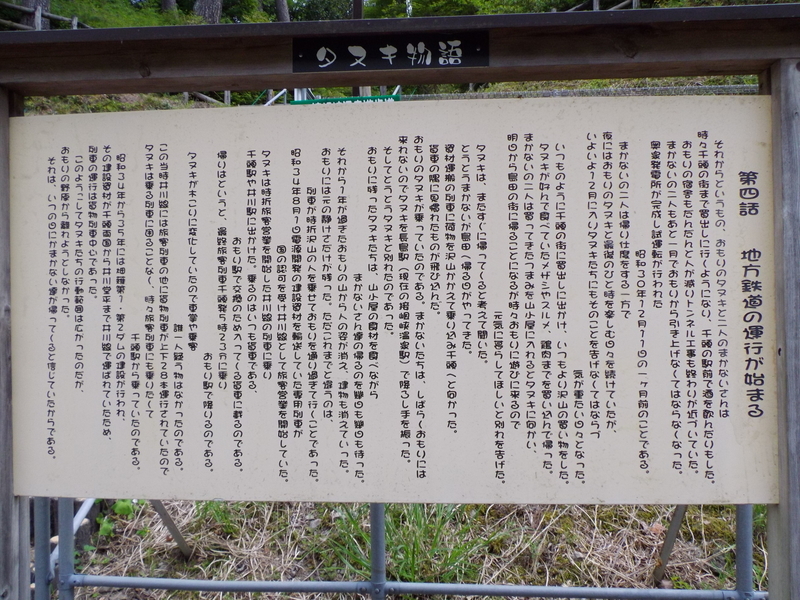 タヌキ物語
第四話　地方鉄道の運行が始まる
それからというもの、おもりのタヌキと二人のまかないさんは
時々千頭の街まで買出しに行くようになり、千頭の駅前で酒を飲んだりもした。
おもりの宿舎もだんだんと人が減りトンネル工事も終わりが近づいていた。
まかないの二人もあと一月でおもりから引き上げなくてはならなくなった。
奥泉発電所が完成し試運転が行われた
昭和30年12月11日の一ヶ月前のことである。
まかないの二人は帰り仕度をする一方で
夜にはおもりのタヌキと最後のひと時を楽しむ日々を続けていたが、
いよいよ12月に入りタヌキたちにもそのことを告げなくてはならづ
気が重たい日々となった。
いつものように千頭の街に買出しに出かけ、いつもより沢山の買い物をした。
タヌキが好んで食べていたメザシやスルメ、鶏肉までを買い込んで帰った。
まかないの二人は買ってきたつまみを山小屋に入れるとタヌキに向かい、
明日から島田の街に帰ることになるが時々おもりに遊びに来るので
元気に暮らしてほしいと別れを告げた。
タヌキは、またすぐに帰ってくると考えて聞いた。
とうとうまかないが島田へ帰る日がやってきた。
資材運搬の列車に荷物を沢山かかえて乗り込み千頭へと向かった。
貨車の隅に見慣れたものが飛び込んだ。
おもりのタヌキが乗っていたのである。まかないたちは、しばらくおもりには
来れないのでタヌキを長島駅（現在の接岨峡温泉駅）で降ろし手を振った。
そしてとうとうタヌキと別れたのであった。
おもりに残ったタヌキたちは、山小屋の食材を食べながら
まかないさん達の帰るのを幾日も幾日も待った。
それから1年が過ぎたおもりの山から人の姿が消え、建物も消えていった。
おもりには元の静けさだけが残った。ただこれまでと違うのは、
列車が時折沢山の人を乗せておもりを通り過ぎて行くことであった。
昭和34年8月1日電源開発の建設資材を輸送していた専用列車が
国の認可を受け井川線として旅客営業を開始していた。
タヌキは時折旅客営業を開始した井川線の列車に乗り
千頭駅や井川駅に出かけた。乗るのはいつも貨車である。
おもり駅で交換のため入ってくる貨車に載るのである。
帰りはというと、最終旅客列車千頭発7時23分に乗り
おもり駅で降りるのである。
タヌキがキコリに変化していたので車掌や乗客
誰一人疑う物はなかったのである。
この当時井川線には旅客列車の他に貨物列車が上下28本運行されていたので
タヌキは乗る列車に困ることなく、時々旅客列車にも乗りたくて
千頭駅から乗っていたのである。
昭和34年から35年には畑薙第1・第2ダムの建設が行われ、
その建設資材が千頭両国から井川堂平まで井川線で運ばれていたため、
列車の運行は貨物列車中心であった。
このようにしてタヌキたちの行動範囲は広がったのだが、
おもりの野原から離れようとしなかった。
それは、いつの日にかまかない達が帰ってくると信じていたからである。